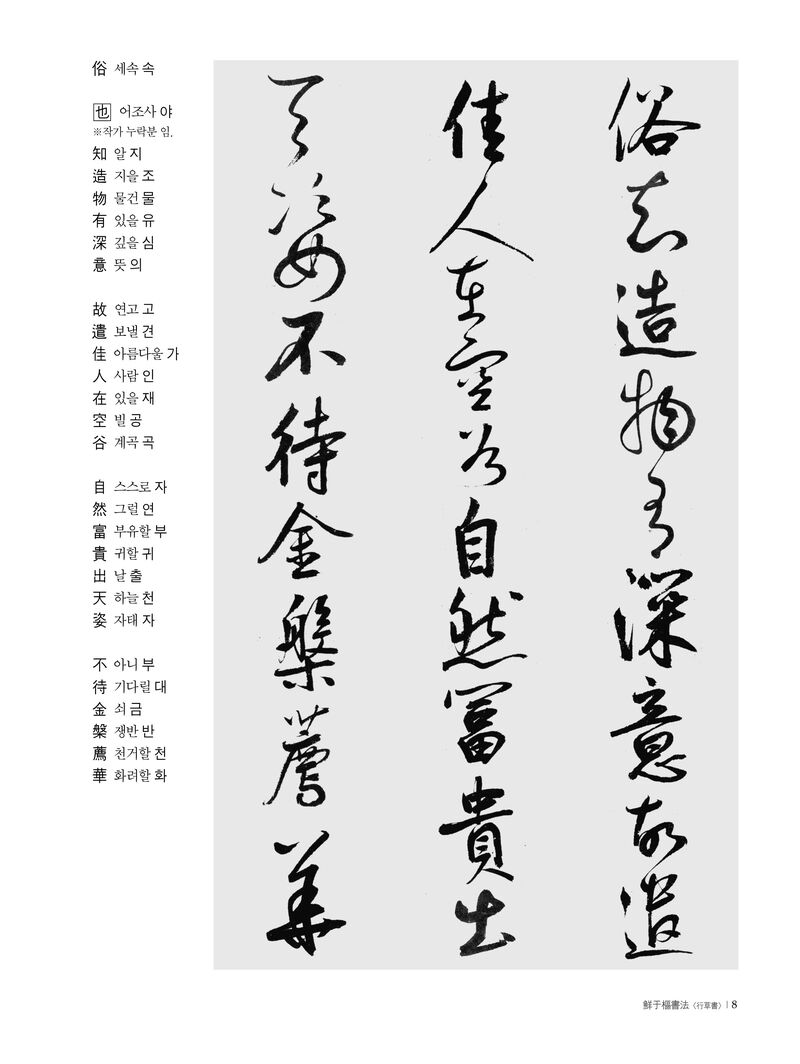 俗 세속 속
也 어조사 야
※작가 누락분 임.
知 알 지
造 지을 조
物 물건 물
有 있을 유
深 깊을 심
意 뜻 의
故 연고 고
遣 보낼 견
佳 아름다울 가
人 사람 인
在 있을 재
空 빌 공
谷 계곡 곡
自 스스로 자
然 그럴 연
富 부유할 부
貴 귀할 귀
出 날 출
天 하늘 천
姿 자태 자
不 아니 부
待 기다릴 대
金 쇠 금
槃 쟁반 반
薦 천거할 천
華 화려할 화
俗知造物有深意故遣
佳人在空谷自然富貴出
天姿不待金槃薦華
鮮于樞書法〈行草書〉 | 8